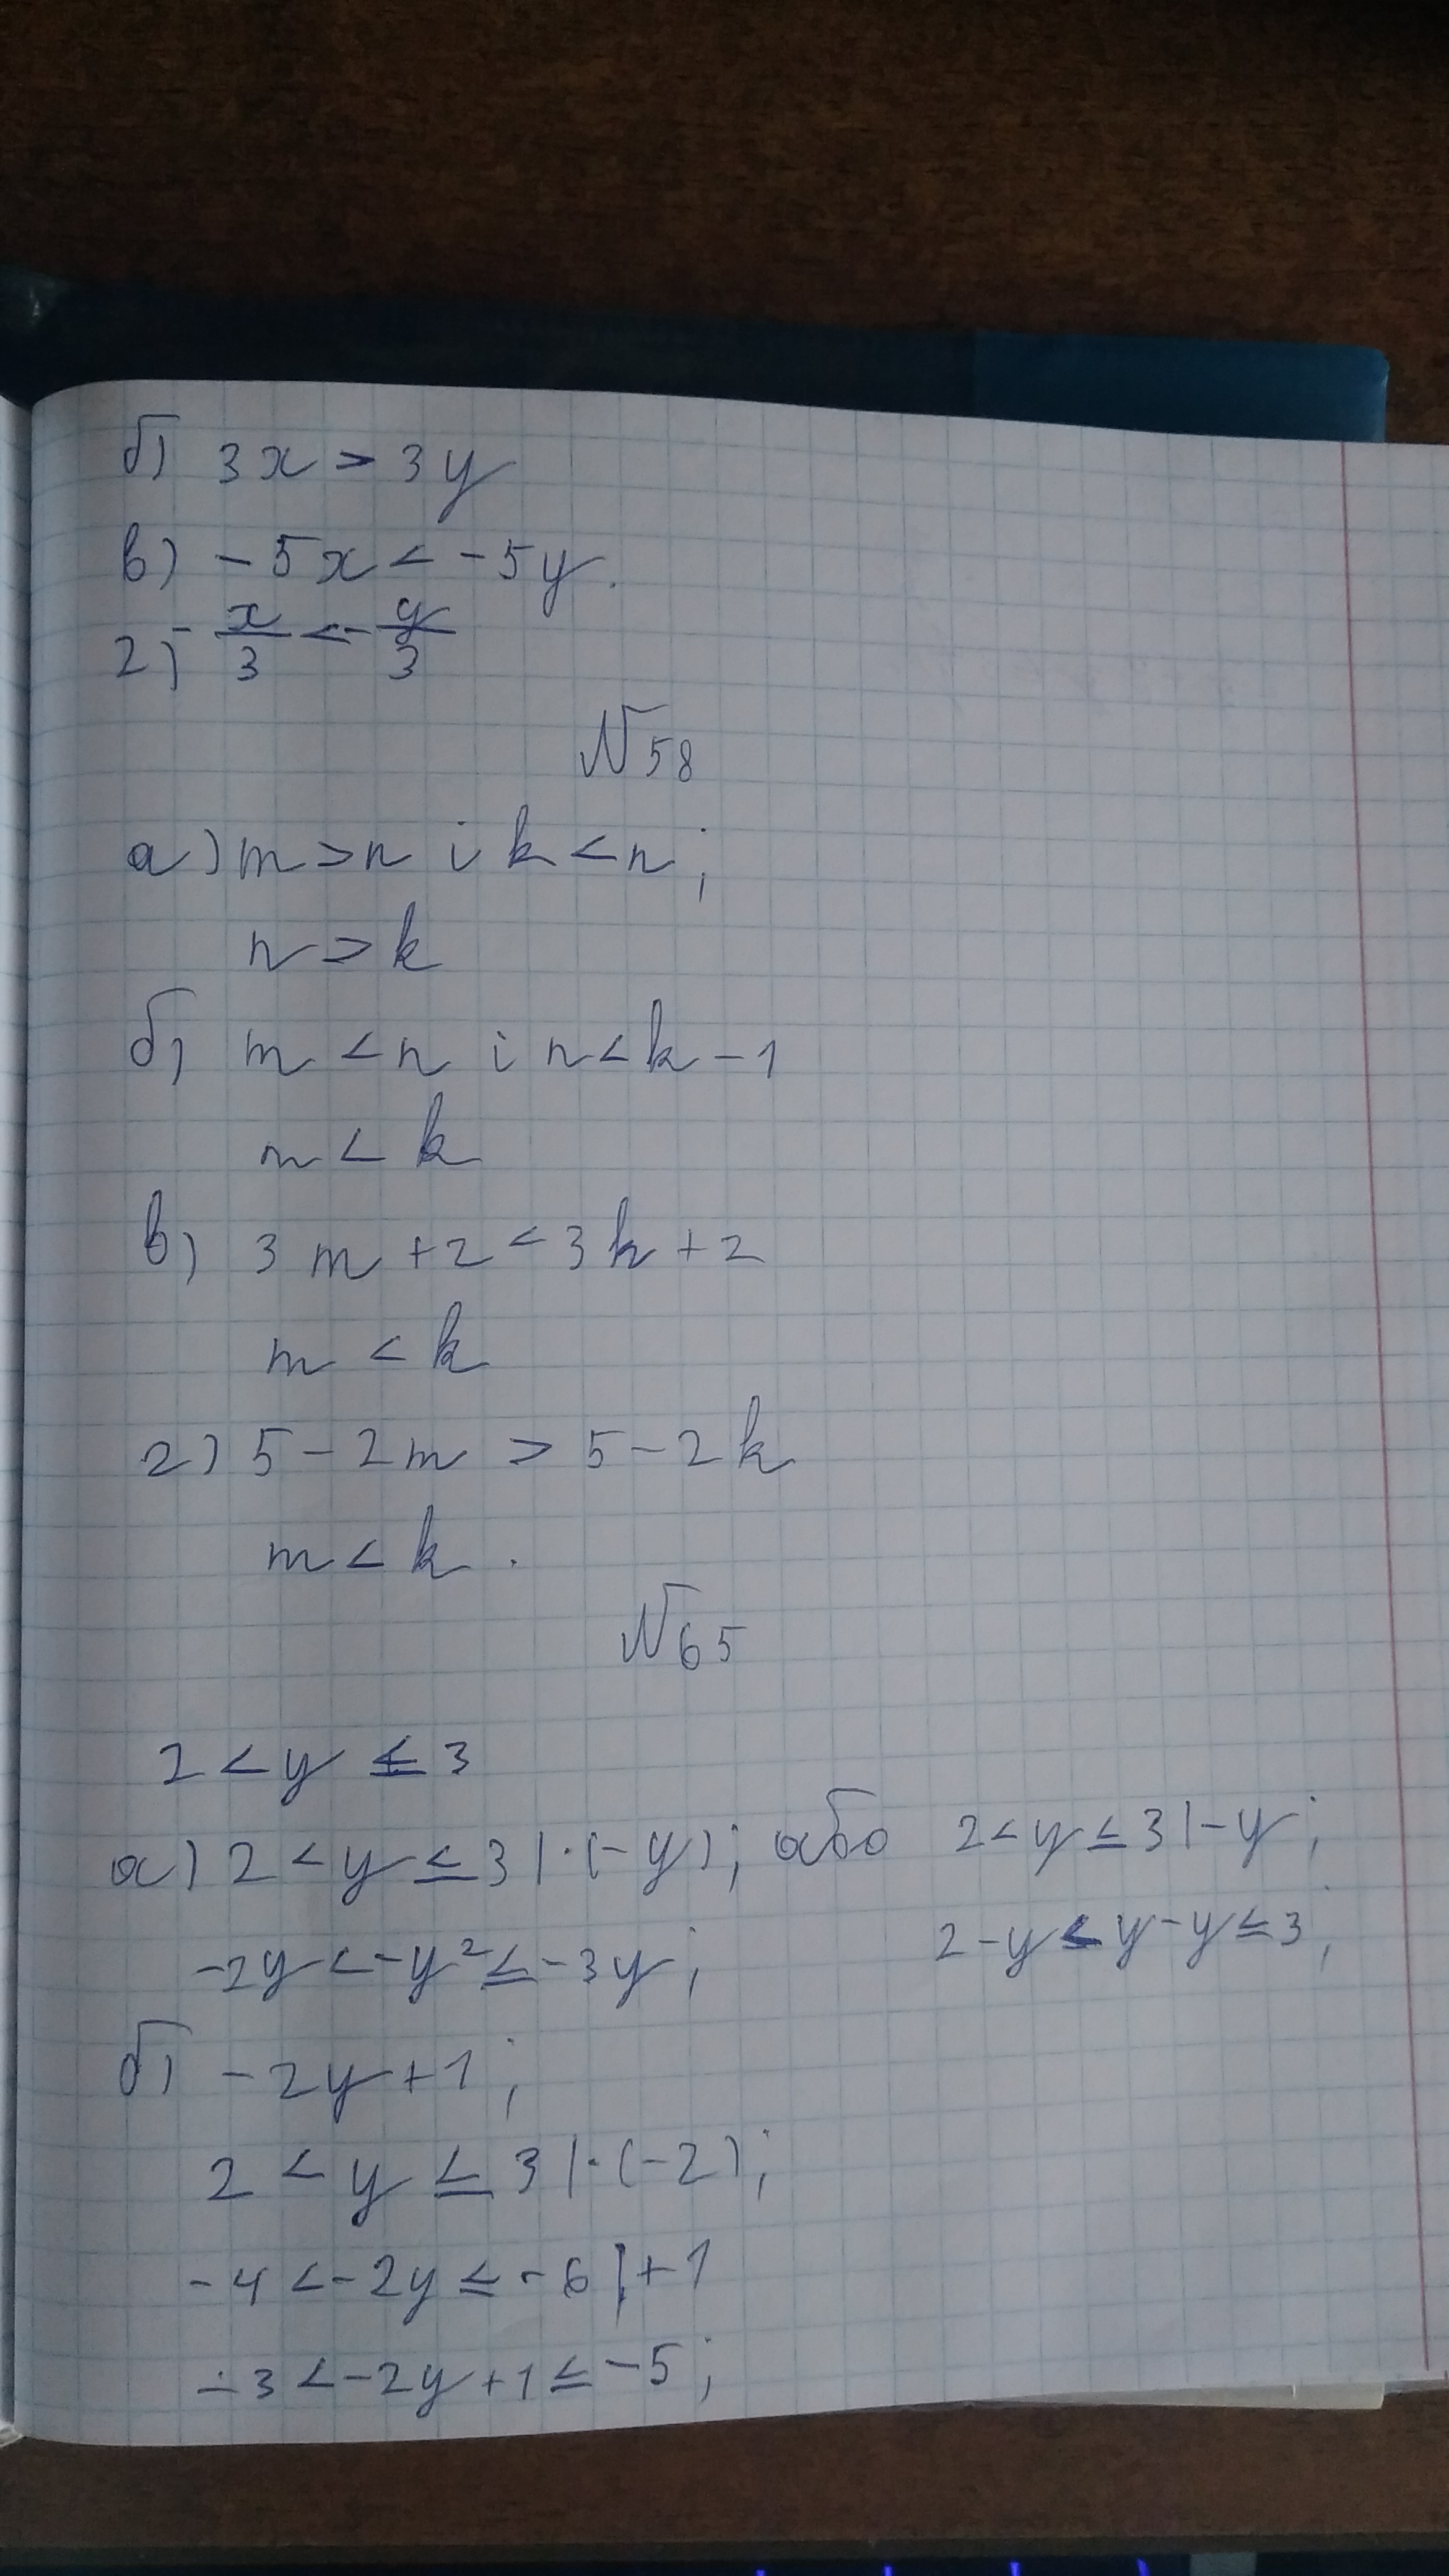 б) 3x > 3y
в) -5x < -5y.
г) -x/3 < -y/3
№58
а) m > n i k < n;
n > k
б) m < n i n < k - 1
m < k
в) 3m + 2 < 3k + 2
m < k
г) 5 - 2m > 5 - 2k
m < k.
№65
2 < y ≤ 3
а) 2 < y ≤ 3 | · (-y); або 2 < y ≤ 3 | -y;
-2y < -y² ≤ -3y; 2 - y < y - y ≤ 3;
б) -2y + 1;
2 < y ≤ 3 | · (-2);
-4 < -2y ≤ -6 | +1
-3 < -2y + 1 ≤ -5;